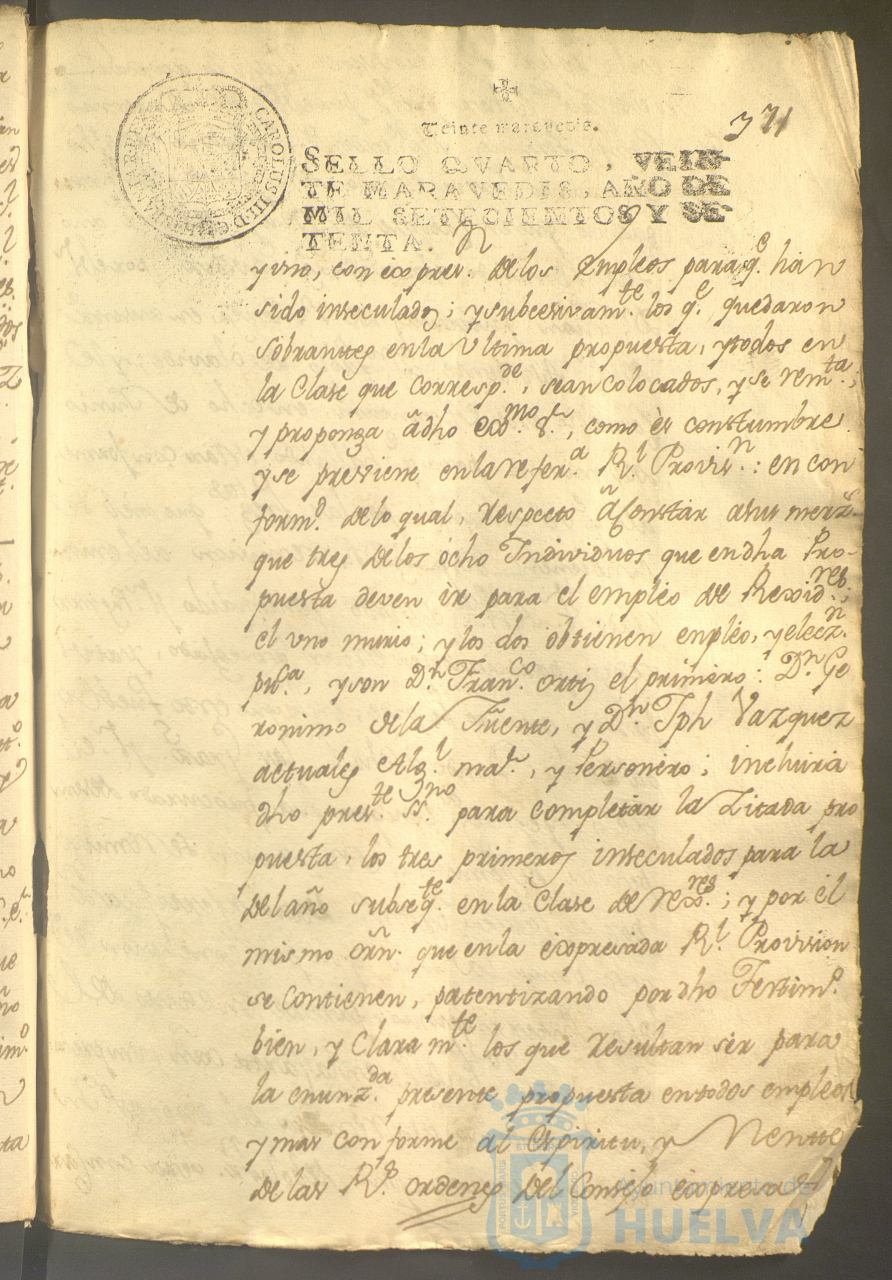 371
Veinte maravedis.
CAROLUS III D G
SELLO QVARTO, VEIN-
TE MARAVEDIS, AÑO DE
MIL SETECIENTOS Y SE-
TENTA.
y vno, con expres.n de los empleos para q.e han
sido inseculados; y subcesivam.te los q.e quedaron
sobrantes en la vltima propuesta, y todos en
la Clase que corresp.de, sean colocados, y se rem.ta;
y proponga â dho Exc.mo S.r, como ês constumbre
y se previene en la refer.a R.l Provis.n: en con
form.d de lo qual, respecto â Constar â sus merz.s
que tres de los ôcho Individuos que en dha Pro-
puesta deven ir para el empleo de Rexid.res;
el vno murio; y los dos obtienen empleo, y elecz.n
pu.ca, y son D.n Fran.co Ortiz el primero: D.n Ge
ronimo de la Fuente, y D.n Jph Vazquez
actuales Alg.l ma.r, y Personero; incluira
dho pres.te ss.no para completar la Zitada pro
puesta, los tres primeros inseculados para la
del año subseq.te en la Clase de rex.res; y por el
mismo orn. que en la expresada R.l Provision
se contienen, patentizando por dho Testim.o
bien, y Claram.te los que resultan ser para
la enunz.da presente propuesta en todos empleos
y mas conforme al Espiritu, y Mente
de las R.s ordenes del Consejo expresad
Ayuntamiento de
HUELVA